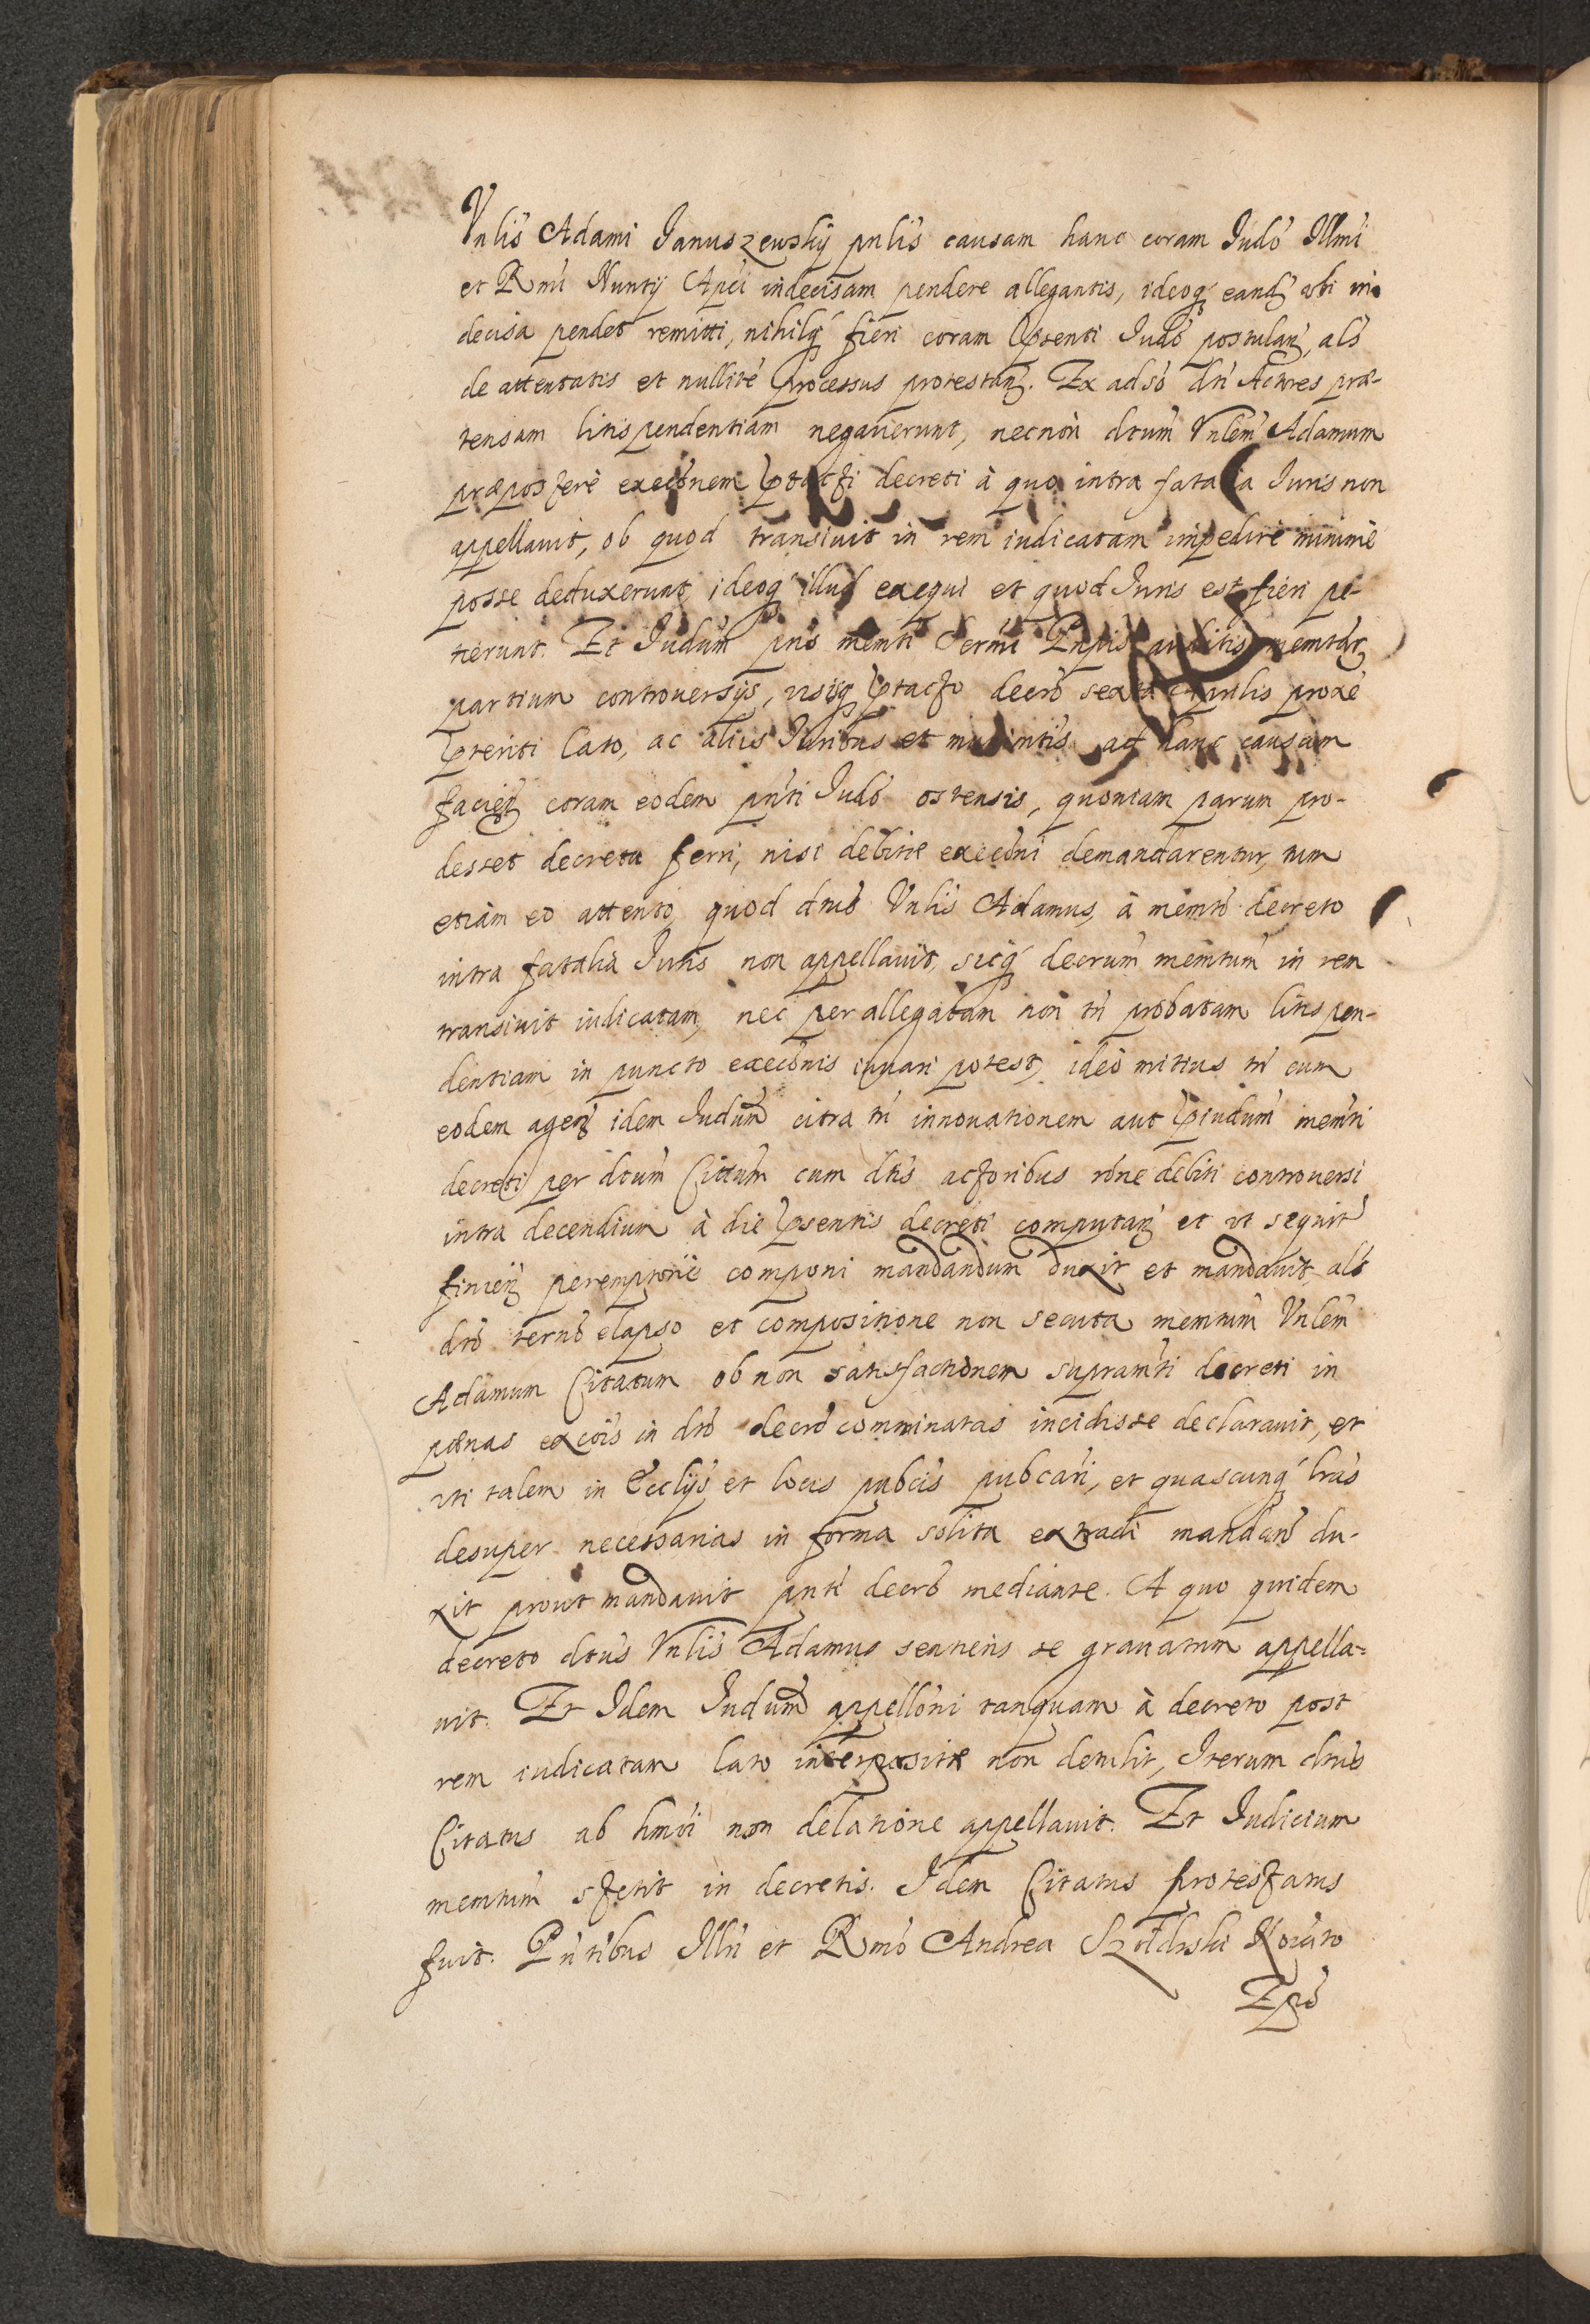 Vnlis Adami Januszewskij pnlis causam hanc coram Judo Illmi
et Rmi Nuntij Aplci indecisam pendere allegantis, ideoq eand vbi in
decisa pendet remitti, nihilq fieri coram psenti Judo postulan, als
de attentatis et nullite processus protestan. Ex adso dti Actores præ-
tensam litispendentiam negauerunt, necnon dtum Vnlem Adamum
præpostere execonem ptacti decreti à quo intra fatalia Juris non
appellauit, ob quod transiuit in rem iudicatam impedire minime
posse deduxerunt ideoq illud exequi et quod Juris est fieri pe-
tierunt. Et Judum pns memti Sermi Pnpis auditis memtar
partium controuersijs, visisq ptacto decro sexta Aprilis proxe
pteriti lato, ac alijs Juribus et munintis ad hanc causam
facien coram eodem pnti Judo ostensis, quoniam parum pro-
desset decreta ferri, nisi debitæ execoni demandarentur, tum
etiam eo attento, quod dtus Vnlis Adamus, à memto decreto
intra fatalia Juris non appellauit, sicq decrum memtum in rem
transiuit iudicatam, nec per allegatam non tn probatam litispen-
dentiam in puncto execonis iuuari potest, ideo mitius tn cum
eodem agen idem Judum citra tn innouationem aut piudum memti
decreti per dtum Cittum cum dtis actoribus rone debiti controuersi
intra decendium à die psentis decreti computan et vt sequit
finien peremptorie componi mandandum duxit et mandauit als
dto termo elapso et compositione non secuta memtum Vnlem
Adamum Citatum ob non satisfactionem supramti decreti in
pænas excois in dto decro comminatas incidisse declarauit, et
vti talem in Ecclijs et locis pubcis pubcari, et quascunq lras
desuper necessarias in forma solita extradi mandand du-
xit prout mandauit pnti decro mediante. A quo quidem
decreto dtus Vnlis Adamus sentiens se grauatum appella-
uit. Et Idem Judum appelloni tanquam à decreto post
rem iudicatam lato interpositæ non detulit, Iterum dtus
Citatus ab hmoi non delatione appellauit. Et Judicium
memtum stetit in decretis. Idem Citatus protestatus
fuit. Pntibus Illri et Rmo Andrea Szołdrski
Epo